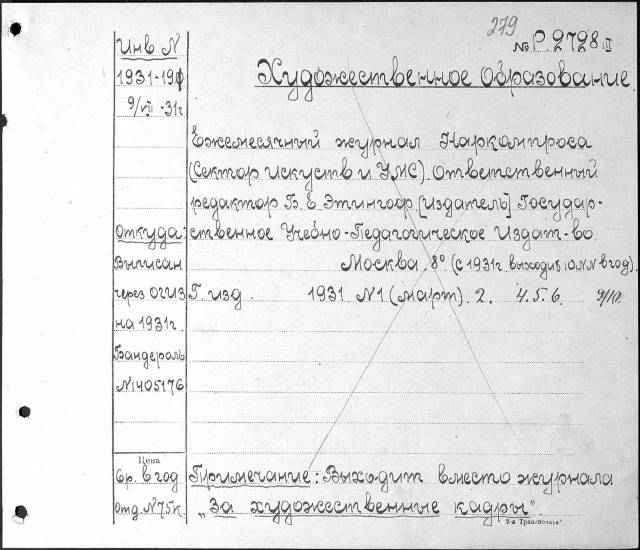 279
№ Р. 2728 II
Инв N
Художественное образование
1931-190
9/VII -31г
Ежемесячный журнал Наркомпроса
(Сектор искуств и УМС). Ответственный
редактор Б. Е. Этингоф. [Издатель] Государ-
Откуда:
ственное Учебно-Педагогическое Издат-во.
Выписан
Москва. 8° (С 1931г. выходил 10 NN в год).
через ОГИЗ
Г. изд. 1931 N1 (март). 2. 4. 5. 6. 9/10.
на 1931г.
Бандероль
N1405176
Цена
6р. в год
Примечание: Выходит вместо журнала
отд. N 75к.
"За художественные кадры".
2-я Транспечать